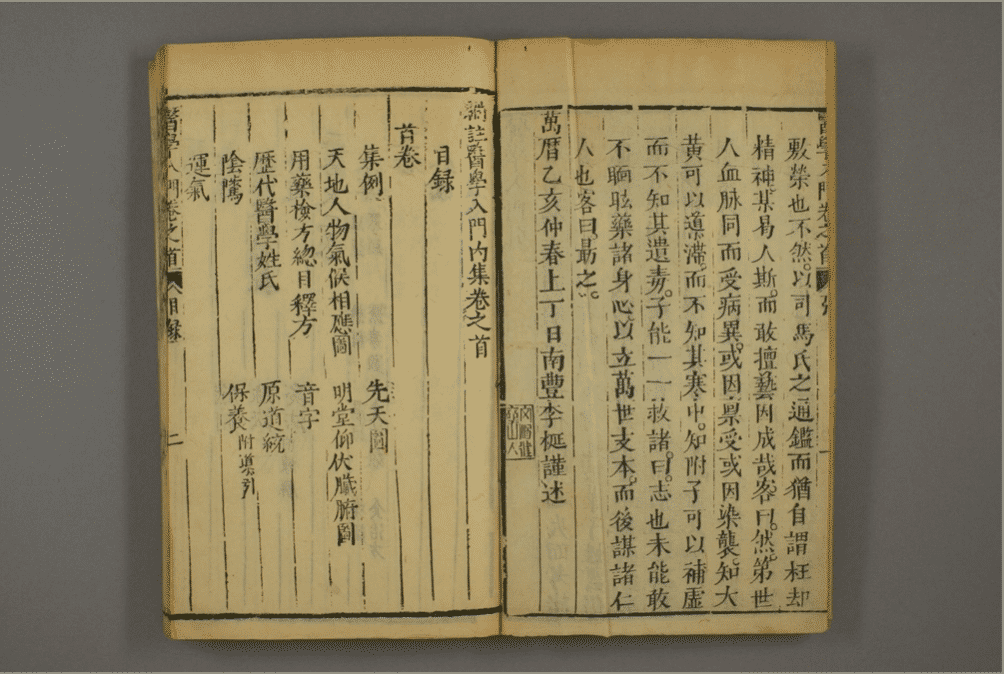 醫學入門卷之首
敷榮也不然以司馬氏之通鑑而猶自謂枉却
精神某曷人斯而敢擅藝因成哉客曰然第世
人血脉同而受病異或因禀受或因染襲知大
黃可以導滯而不知其寒中知附子可以補虛
而不知其遺毒子能一一救諸曰志也未能敢
不瞑眩藥諸身心以立萬世支本而後謀諸仁
人也客曰勗之
萬曆乙亥仲春上丁日南豐李梴謹述
註醫學入門內集卷之首
目録
首卷
集例 先天圖
天地人物氣候相應圖 明堂仰伏臟腑圖
用藥檢方總目釋方 音字
歷代醫學姓氏 原道統
陰騭 保養附導引
運氣
醫學入門卷之首 目録 二